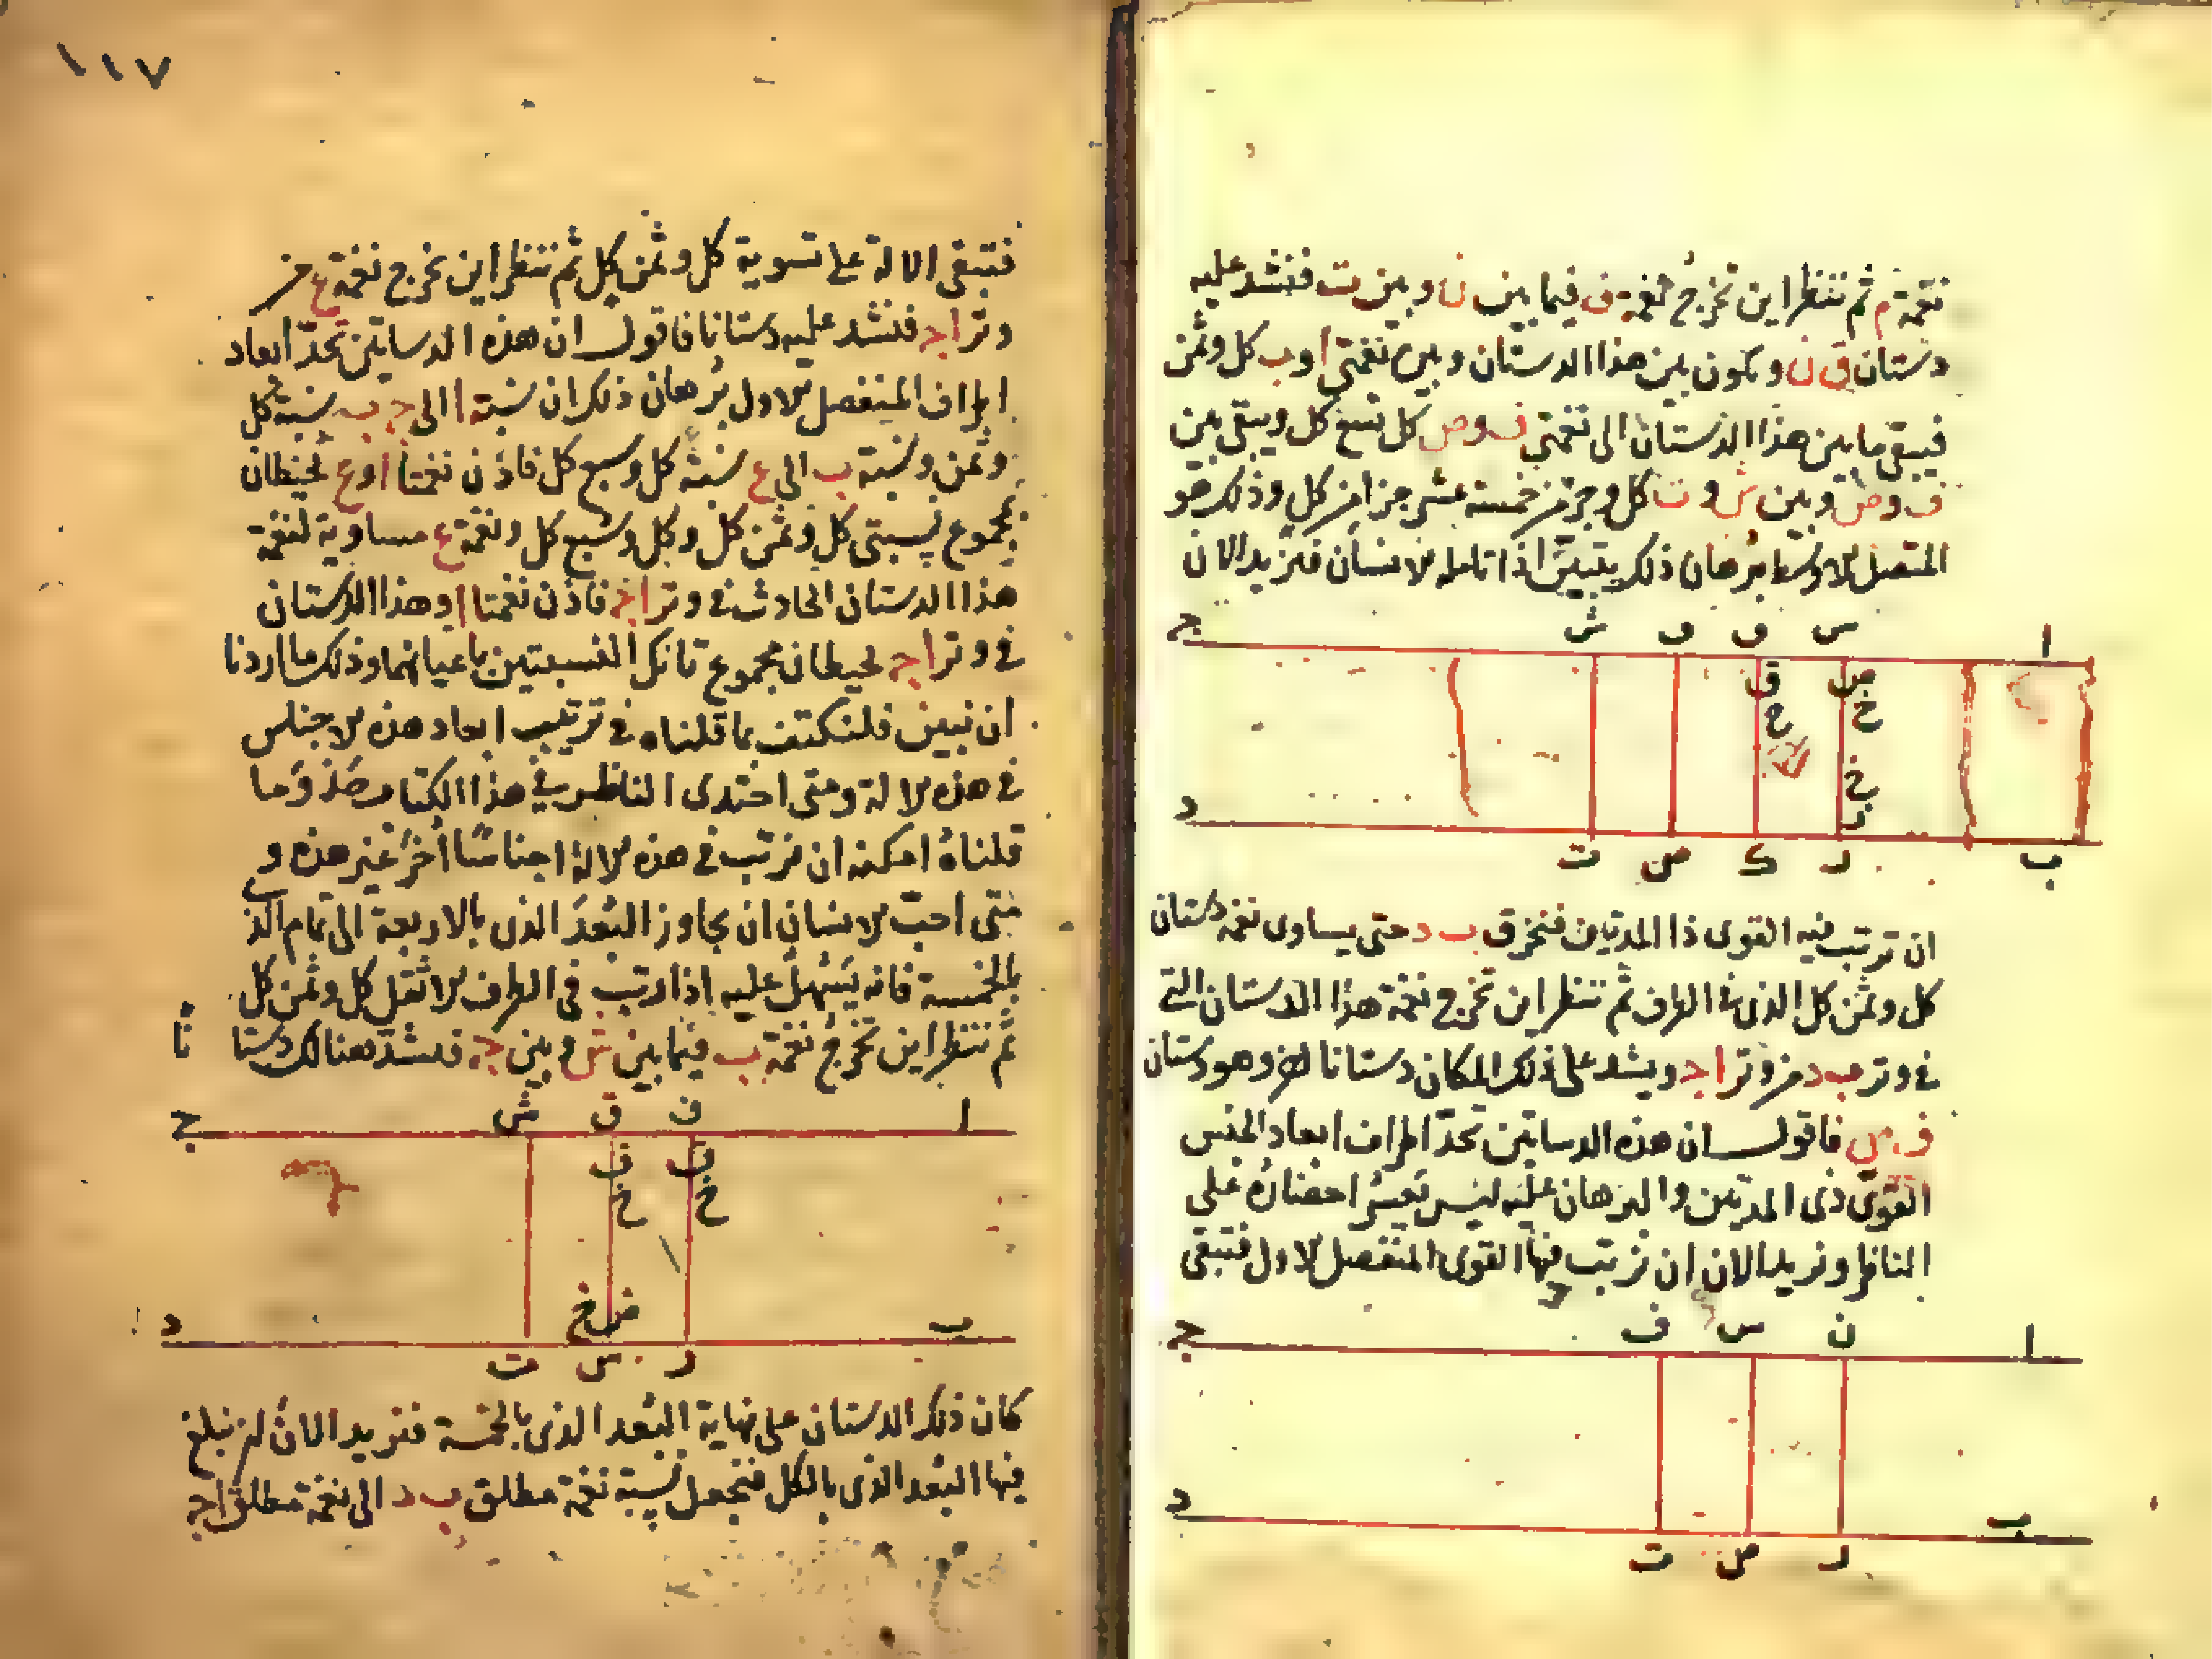 نغمة م ثم ننظر اين تخرج نغمة ف فيما بين ن و بين ت فنشد عليه
دستان ق ن ويكون بين هذا الدستان وبين نغمتى ا و ب كل وثمن
فيبقى ما بين هذا الدستان الى نغمتى ف و ص كل تسع كل ويبقى بين
ف و ص و بين ش و ت كل وجزء من خمسة عشر جزا من كل وذلك هو
المتصل الاوسط برهان ذلك يتبين اذا تامله الانسان فنزيد الان
س ق ف ش
ا ج
ص ق
خ ح
خ
ب د
ر ك ص ت
ان نرتب فيه القوى ذا المدتين فنحزق ب د حتى يساوى نغمة دستان
كل وثمن كل الذى فى الطرف ثم ننظر اين تخرج نغمة هذا الدستان التى
فى وتر ب د من وتر ا ج ويشد على ذلك المكان دستانا اخر وهو دستان
ف ص فاقول ان هذه الدساتين تحد اطراف ابعاد الجنس
القوى ذى المدتين والبرهان عليه ليس يعسر احضاره على
الناظر ونريد الان ان نرتب فيها القوى المنفصل الاول فتبقى
ن س ف
ا ج
ب د
ر ص ت
١١٧
فتبقى الالة على تسوية كل وثمن كل ثم ننظر اين تخرج نغمة ع من
وتر ا ج فنشد عليه دستانا فاقول ان هذه الدساتين تحد ابعاد
اطراف المنفصل الاول برهان ذلك ان نسبة ا الى ب نسبة كل
وثمن ونسبة ب الى ع نسبة كل وسبع كل فاذن نغمتا ا و ع تحيطان
بمجموع نسبتى كل وثمن كل وكل وسبع كل ونغمة ع مساوية لنغمة
هذا الدستان الحادث فى وتر ا ج فاذن نغمتا ا و هذا الدستان
فى وتر ا ج تحيطان بمجموع تانك النسبتين باعيانهما وذلك ما اردنا
ان نبين فلنكتف بما قلناه فى ترتيب ابعاد هذه الاجناس
فى هذه الالة ومتى احتذى الناظر فى هذا الكتاب حذو ما
قلناه امكنه ان نرتب فى هذه الالة اجناسا اخر غير هذه و
متى احب الانسان ان يجاوز البعد الذى بالاربعة الى تمام الذى
بالخمسة فانه يسهل عليه اذا رتب فى الطرف الاثقل كل وثمن كل
ثم ننظر اين تخرج نغمة ب فيما بين ش و بين ج فنشد هنالك دستانا
ف ق ش
ا ج
ف ف
خ خ
ب د
ر س ت
كان ذلك الدستان على نهاية البعد الذى بالخمسة فنزيد الان ان نبلغ
فيها البعد الذى بالكل فنجعل نسبة نغمة مطلق ب د الى نغمة مطلق ا ج